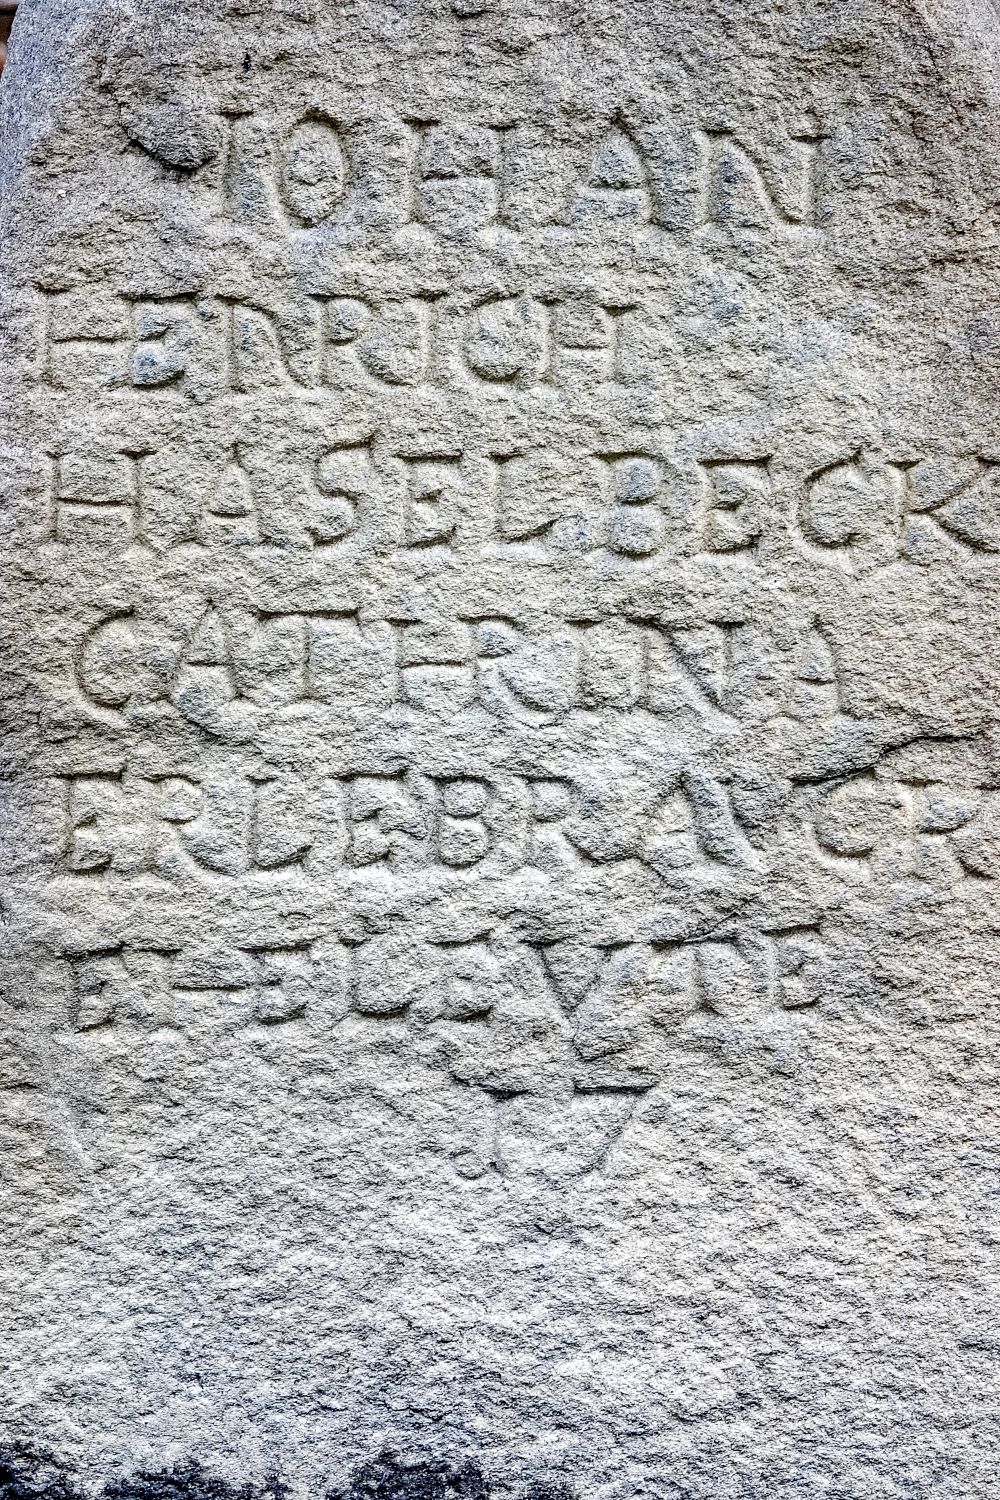 IOHAN
HENRICH
HASELBECK
CATHRINA
ERLEBRA GR
EHELEVTE